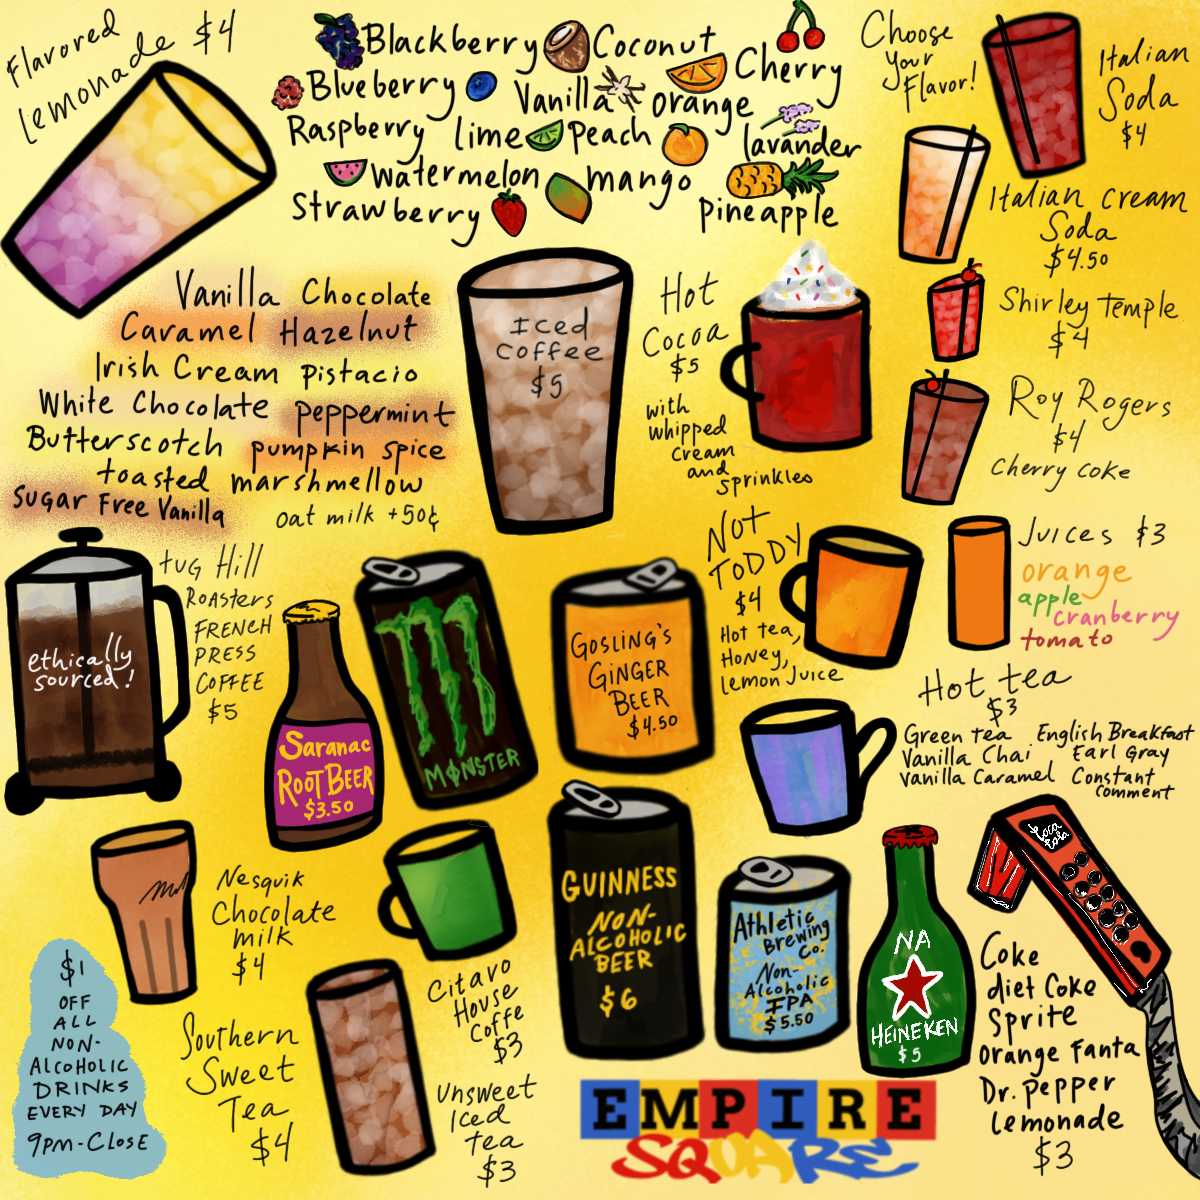 Flavored
Lemonade $4
Blackberry
Coconut
Cherry
Blueberry
Vanilla
orange
Raspberry
lime
Peach
lavander
watermelon
mango
Strawberry
Pineapple
Choose
your
Flavor!
Italian
Soda
$4
Italian cream
Soda
$4.50
Shirley Temple
$4
Roy Rogers
$4
Cherry coke
Vanilla Chocolate
Caramel Hazelnut
Irish Cream Pistacio
White Chocolate peppermint
Butterscotch pumpkin spice
toasted marshmellow
Sugar Free Vanilla
oat milk +50¢
Iced
Coffee
$5
Hot
Cocoa
$5
with
whipped
cream
and
sprinkles
tug Hill
Roasters
FRENCH
PRESS
COFFEE
$5
ethically
sourced!
Saranac
ROOT BEER
$3.50
MONSTER
GOSLING'S
GINGER
BEER
$4.50
NOT
TODDY
$4
Hot tea,
Honey,
lemon Juice
Juices $3
orange
apple
cranberry
tomato
Hot tea
$3
Green tea
Vanilla Chai
Vanilla Caramel
English Breakfast
Earl Gray
Constant
Comment
Nesquik
Chocolate
milk
$4
Citavo
House
Coffe
$3
GUINNESS
NON-
ALCOHOLIC
BEER
$6
Athletic
Brewing
Co.
Non-
Alcoholic
IPA
$5.50
NA
HEINEKEN
$5
Coke
diet Coke
Sprite
Orange Fanta
Dr. Pepper
Lemonade
$3
$1
OFF
ALL
NON-
ALCOHOLIC
DRINKS
EVERY DAY
9PM-CLOSE
Southern
Sweet
Tea
$4
Unsweet
Iced
tea
$3
EMPIRE
SQUARE